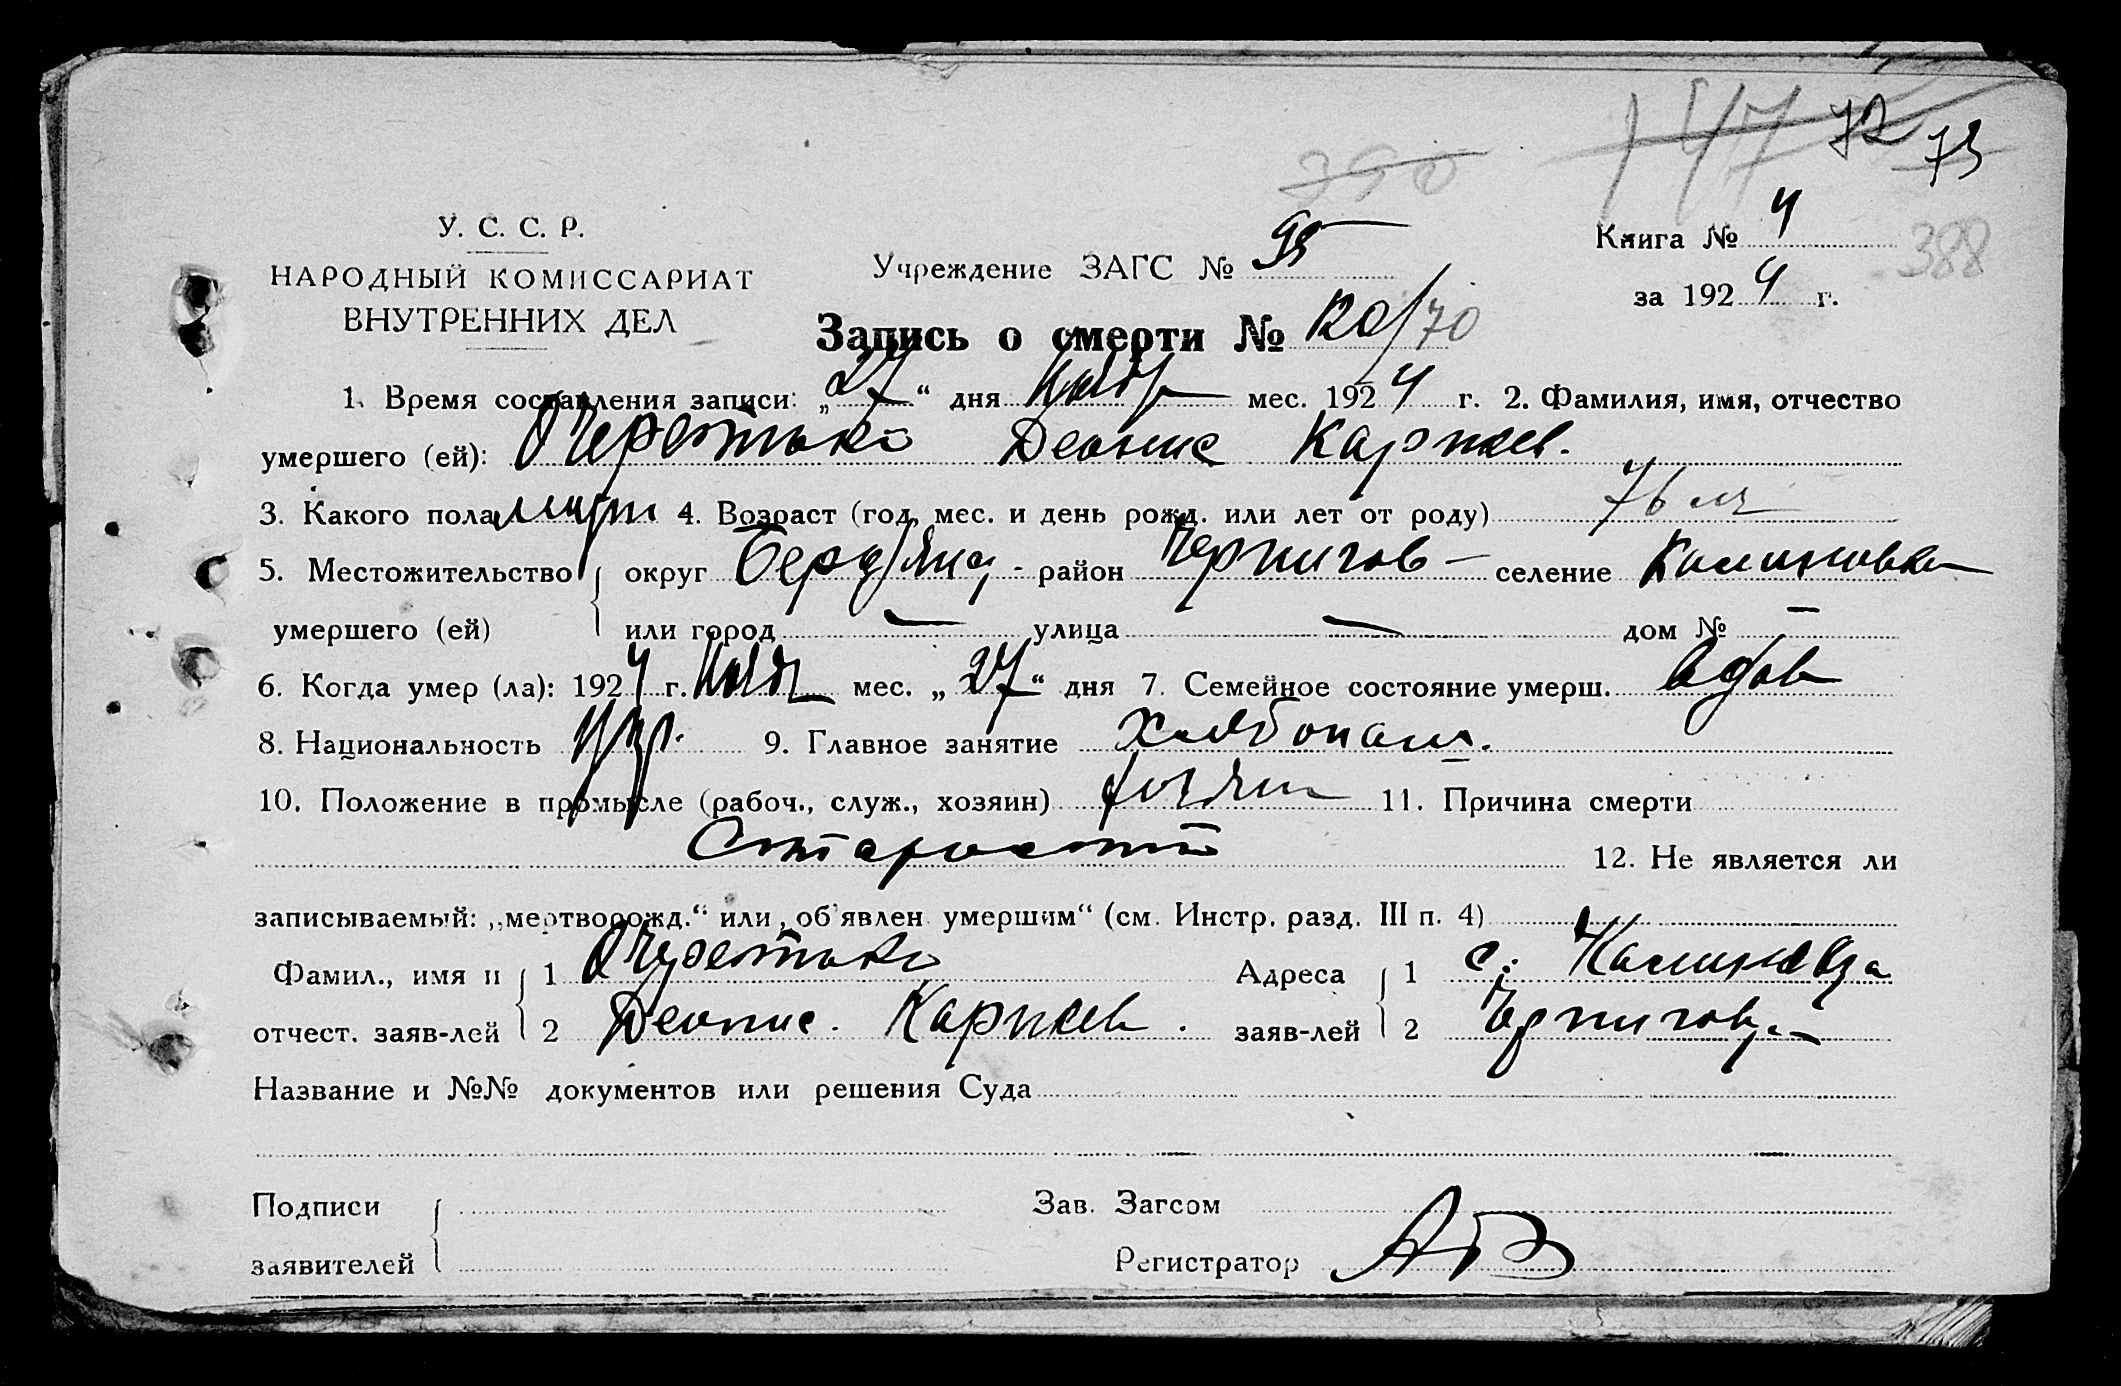 147 72 73
390
У. С. С. Р.
НАРОДНЫЙ КОМИССАРИАТ
ВНУТРЕННИХ ДЕЛ
Учреждение ЗАГС № 95
Книга № 4 388
за 1924 г.
Запись о смерти № 120/70
1. Время составления записи: „27“ дня мес. 1924 г. 2. Фамилия, имя, отчество
умершего (ей): Очеретько Деонис Карпов.
3. Какого пола мужч 4. Возраст (год, мес. и день рожд. или лет от роду) 76 л
5. Местожительство округ Бердянц. район Чернигов – селение Калиновка
умершего (ей) или город — улица — дом № —
6. Когда умер (ла): 1924 г. мес. „27“ дня 7. Семейное состояние умерш. вдов
8. Национальность укр. 9. Главное занятие Хлебопаш.
10. Положение в промысле (рабоч., служ., хозяин) хозяин 11. Причина смерти
Старость 12. Не является ли
записываемый: „мертворожд.“ или „об'явлен умершим“ (см. Инстр. разд. III п. 4)
Фамил., имя и 1 Очеретько Адреса 1 с. Калиновка
отчест. заяв-лей 2 Деонис. Карпов. заяв-лей 2
Название и №№ документов или решения Суда
Подписи Зав. Загсом
заявителей Регистратор